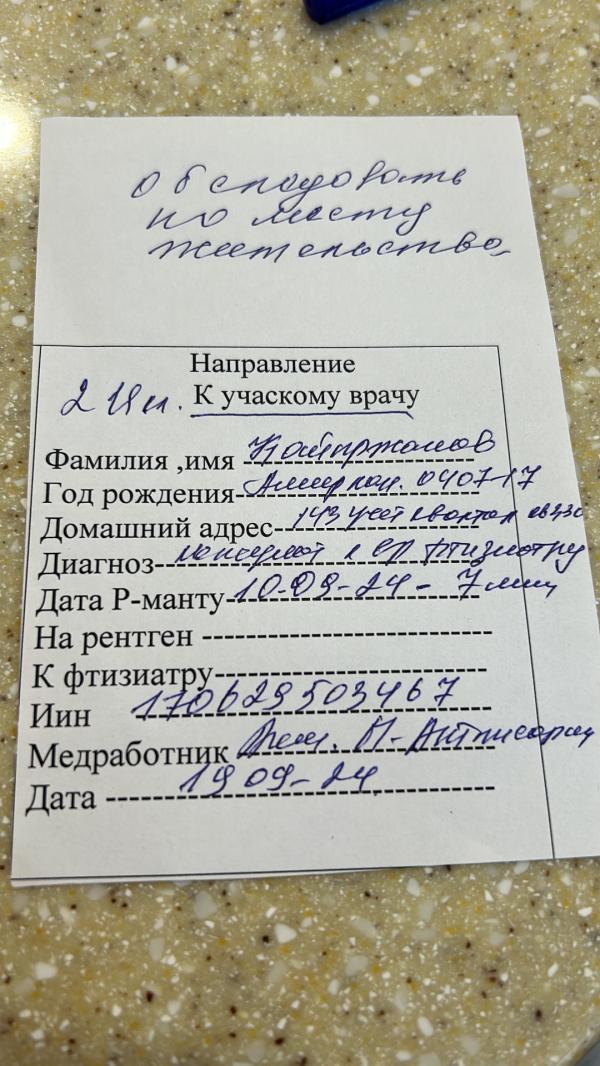 Обследовать
по месту
жительства
Направление
2 Ып. К учаскому врачу
Фамилия ,имя Кайыржанов
Год рождения- 040717
Домашний адрес- 143 учет квартал кв 330
Диагноз- к фтизиатру
Дата Р-манту- 10-09-24 - 7 мм
На рентген
К фтизиатру
Иин 170629503467
Медработник
Дата 19 09-24